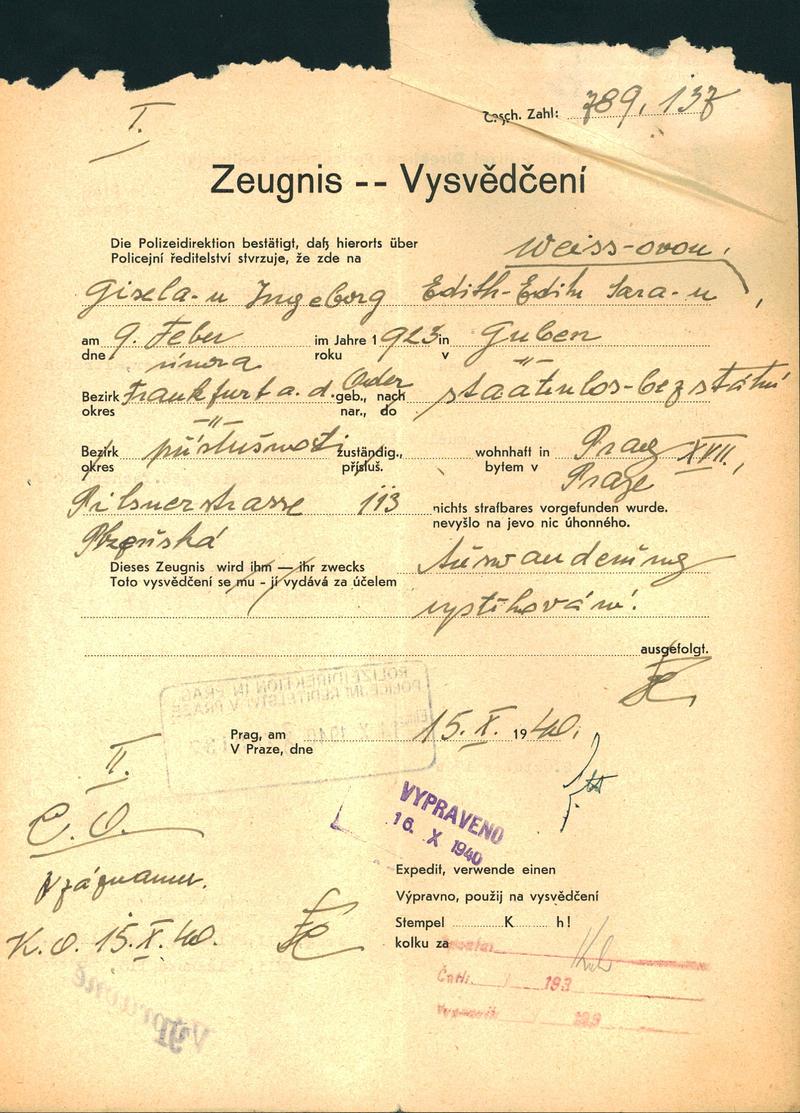 I.
Gesch. Zahl: 789,137
Zeugnis -- Vysvědčení
Die Polizeidirektion bestätigt, daß hierorts über
Policejní ředitelství stvrzuje, že zde na
Weiss-ovou,
Gisela-u Ingeborg Edith-Edit Sara-u,
am 9. Feber im Jahre 1923 in Guben
dne února roku v -"-
Bezirk Frankfurt a. d. Oder geb., nach staatenlos-bez státní
okres -"- nar., do
Bezirk příslušnosti zuständig., wohnhaft in Prag XVII,
okres přísluš. bytem v Praze
Pilsnerstrasse 113 nichts strafbares vorgefunden wurde.
nevyšlo na jevo nic úhonného.
Plzeňská
Dieses Zeugnis wird ihm — ihr zwecks Auswanderung
Toto vysvědčení se mu - jí vydává za účelem
vystěhování.
ausgefolgt.
POLIZEIDIREKTION IN PRAG
POLICEJNÍ ŘEDITELSTVÍ V PRAZE
Prag, am 15. X. 1940.
V Praze, dne
II.
VYPRAVENO
16. X 1940
C. O.
K záznamu.
K. O. 15. X. 40.
Expedit, verwende einen
Výpravno, použij na vysvědčení
Stempel K h!
kolku za
193
193